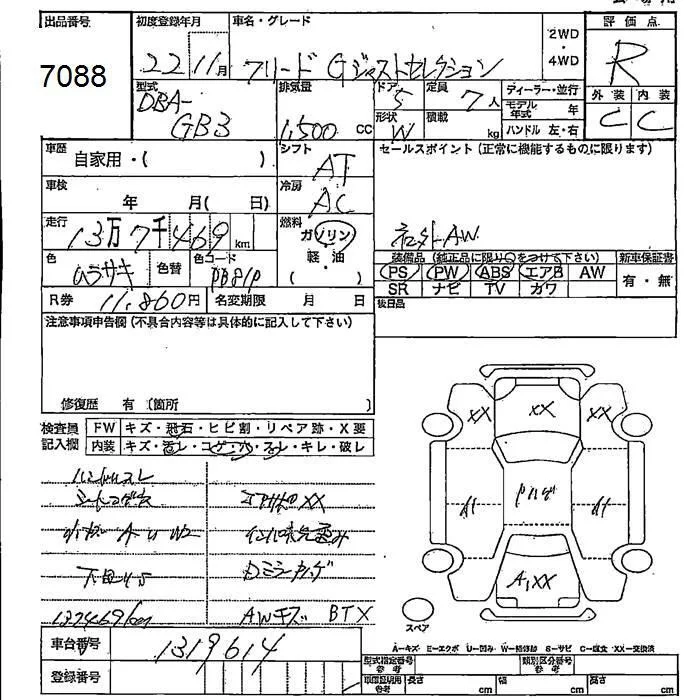 出品番号
7088
初度登録年月
22 11月
車名・グレード
フリード Gジャストセレクション
2WD
・
4WD
評価点
R
型式
DBA-
GB3
排気量
1,500 cc
ドア
5
形状
W
定員
7人
積載
kg
ディーラー・並行
モデル年式 年
ハンドル 左・右
外装 内装
C C
車歴
自家用・( )
シフト
AT
セールスポイント(正常に機能するものに限ります)
車検
年 月( 日)
冷房
AC
走行
13万7千469km
燃料
ガソリン
軽油
( )
社外AW
色
ムラサキ
色替
色コード
PB81P
装備品(純正品に限り○をつけて下さい)
新車保証書
PS PW ABS エアB AW
有・無
SR ナビ TV カワ
R券 11,860円
名変期限 月 日
後日品
注意事項申告欄(不具合内容等は具体的に記入して下さい)
修復歴 有〔箇所 〕
検査員
記入欄
FW キズ・飛石・ヒビ割・リペア跡・X要
内装 キズ・汚レ・コゲ・穴・スレ・キレ・破レ
ハンドルスレ
XX
XX
XX
A1XX
AWキズ BTX
スペア
車台番号
1319614
登録番号
A—キズ E—エクボ U—凹み W—補修跡 S—サビ C—腐食 XX—交換済
型式指定番号
参考
類別区分番号
参考
車庫証明用
参考
長さ cm 幅 cm 高さ cm